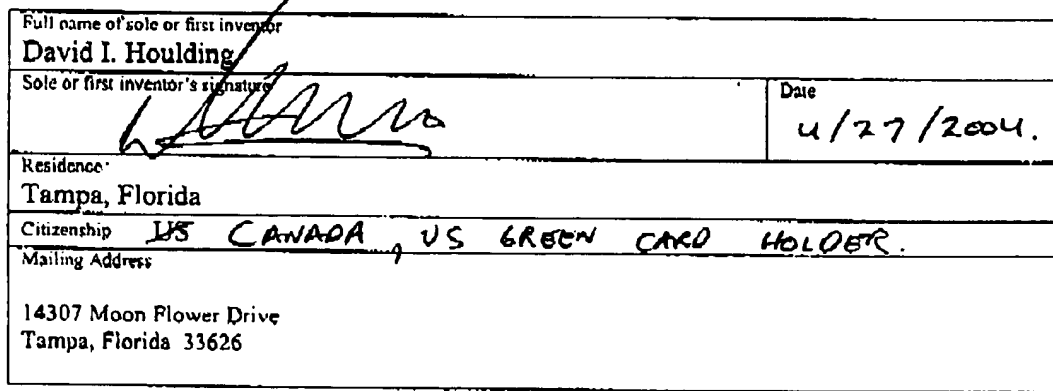 Full name of sole or first inventor
David I. Houlding
Sole or first inventor's signature
Date
4/27/2004.
Residence
Tampa, Florida
Citizenship US CANADA, US GREEN CARD HOLDER.
Mailing Address
14307 Moon Flower Drive
Tampa, Florida 33626